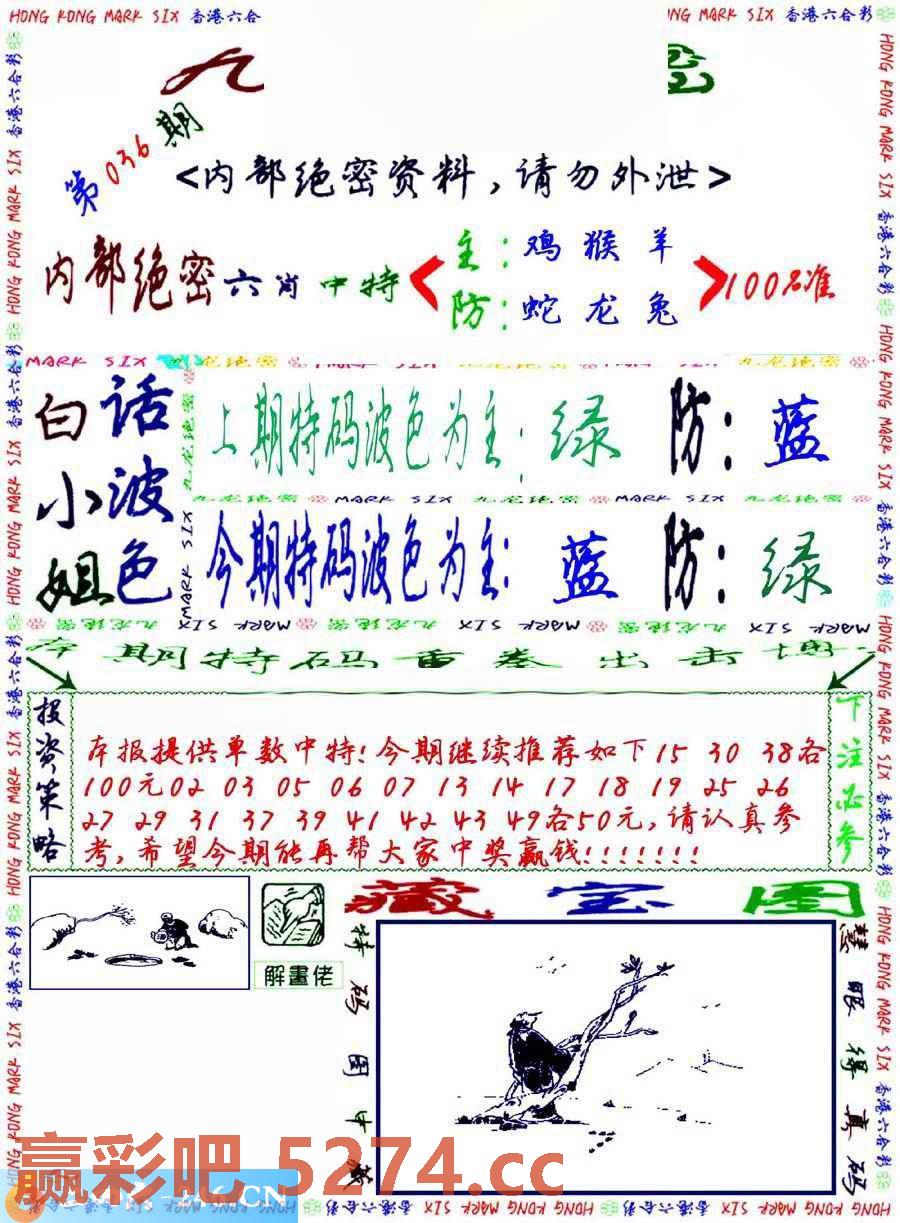 HONG KONG MARK SIX 香港六合
NG MARK SIX 香港六合彩
九
密
第036期
<内部绝密资料,请勿外泄>
内部绝密六肖中特
主:鸡猴羊
防:蛇龙兔
100%准
MARK SIX 九龙绝密
白话
小波
姐色
上期特码波色为主:绿 防:蓝
九龙绝密 MARK SIX 九龙绝密 MARK SIX 九龙绝密
今期特码波色为主:蓝 防:绿
九龙绝密 MARK SIX 九龙绝密 MARK SIX 九龙绝密 MARK SIX
本期特码重拳出击
投资策略
本报提供单数中特!今期继续推荐如下15 30 38各
100元02 03 05 06 07 13 14 17 18 19 25 26
27 29 31 37 39 41 42 43 49各50元,请认真参
考,希望今期能再帮大家中奖赢钱!!!!!!!
下注必参
解畫佬
藏宝图
特码图中
慧眼得真码
HONG KONG MARK SIX 香港六合彩
赢彩吧 5274.cc
.CN